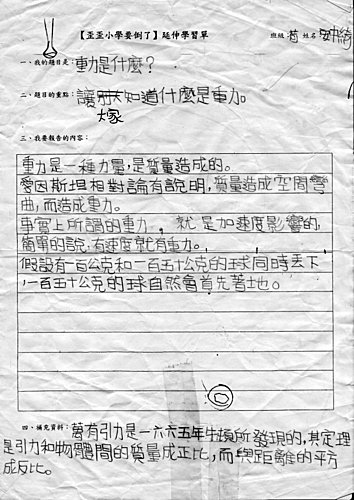 【歪歪小學要倒了】延伸學習單
班級 姓名
一、我的題目是：重力是什麼？
二、題目的重點：讓大家知道什麼是重力。
三、我要報告的內容：
重力是一種力量，是質量造成的。
愛因斯坦相對論有說明，質量造成空間彎
曲，而造成重力。
事實上所謂的重力，就是加速度影響的，
簡單的說，有速度就有重力。
假設有一百公克和一百五十公克的球同時丟下
，一百五十公克的球自然會首先著地。
四、補充資料：萬有引力是一六六五年牛頓所發現的，其定理
是引力和物體間的質量成正比，而與距離的平方
成反比。